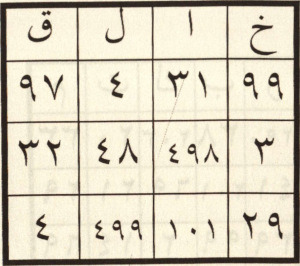 خ ا ل ق
٩٩ ٣١ ٤ ٩٧
٣ ٤٩٨ ٤٨ ٣٢
٢٩ ١٠١ ٤٩٩ ٤